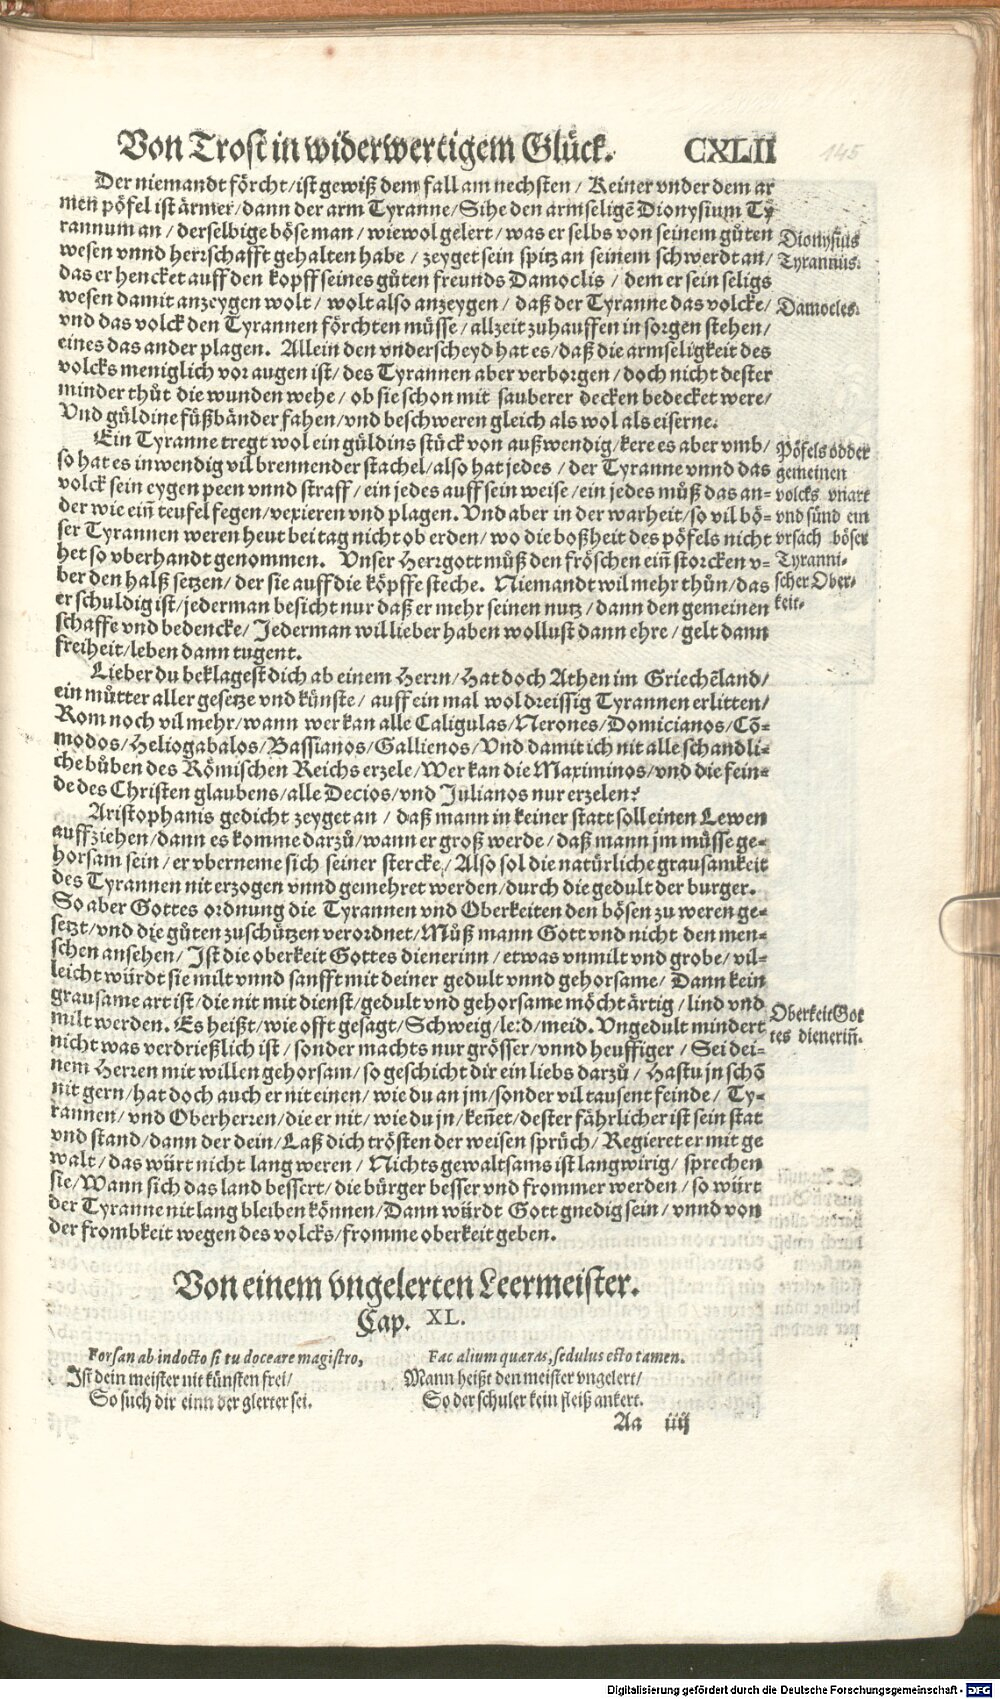 Von Trost in widerwertigem Glück. CXLII
145
Der niemandt förcht/ist gewiß dem fall am nechsten / Keiner vnder dem ar
men pöfel ist ärmer/dann der arm Tyranne/Sihe den armseligẽ Dionysium Ty
rannum an / derselbige böse man / wiewol gelert / was er selbs von seinem gůten
wesen vnnd herrschafft gehalten habe / zeyget sein spitz an seinem schwerdt an/
das er hencket auff den kopff seines gůten freunds Damoclis / dem er sein seligs
wesen damit anzeygen wolt / wolt also anzeygen / daß der Tyranne das volcke/
vnd das volck den Tyrannen förchten müsse / allzeit zuhauffen in sorgen stehen/
eines das ander plagen. Allein den vnderscheyd hat es/daß die armseligkeit des
volcks meniglich vor augen ist/des Tyrannen aber verborgen / doch nicht dester
minder thůt die wunden wehe / ob sie schon mit sauberer decken bedecket were/
Vnd güldine fůßbänder fahen/vnd beschweren gleich als wol als eiserne.
Dionysius
Tyrannus.
Damocles.
Ein Tyranne tregt wol ein güldins stück von außwendig/kere es aber vmb/
so hat es inwendig vil brennender stachel/also hat jedes / der Tyranne vnnd das
volck sein eygen peen vnnd straff / ein jedes auff sein weise/ein jedes můß das an-
der wie ein̄ teufel fegen/vexieren vnd plagen. Vnd aber in der warheit/so vil bö-
ser Tyrannen weren heut bei tag nicht ob erden/wo die boßheit des pöfels nicht
het so vberhandt genommen. Vnser Herrgott můß den fröschen ein̄ storcken v-
ber den halß setzen/der sie auff die köpffe steche. Niemandt wil mehr thůn/das
er schuldig ist/jederman besicht nur daß er mehr seinen nutz / dann den gemeinen
schaffe vnd bedencke/Jederman wil lieber haben wollust dann ehre/gelt dann
freiheit/leben dann tugent.
Pöfels odder
gemeinen
volcks vnart
vnd sünd ein
vrsach böser
Tyranni-
scher Ober-
keit.
Lieber du beklagest dich ab einem Herrn/Hat doch Athen im Griechẽland/
ein můtter aller gesetze vnd künste / auff ein mal wol dreissig Tyrannen erlitten/
Rom noch vil mehr/wann wer kan alle Caligulas/Nerones/Domicianos/Cõ-
modos/Heliogabalos/Bassianos/Gallienos/Vnd damit ich nit alle schandli-
che bůben des Römischen Reichs erzele/Wer kan die Maximinos/vnd die fein-
de des Christen glaubens/alle Decios/vnd Julianos nur erzelen?
Aristophanis gedicht zeyget an / daß mann in keiner statt soll einen Lewen
auffziehen/dann es komme darzů/wann er groß werde / daß mann jm müsse ge-
horsam sein / er vberneme sich seiner stercke/Also sol die natürliche grausamkeit
des Tyrannen nit erzogen vnnd gemehret werden/durch die gedult der burger.
So aber Gottes ordnung die Tyrannen vnd Oberkeiten den bösen zu weren ge-
setzt/vnd die gůten zu schützen verordnet/Můß mann Gott vnd nicht den men-
schen ansehen/ Ist die oberkeit Gottes dienerinn/etwas vnmilt vnd grobe/ vil-
leicht würdt sie milt vnnd sanfft mit deiner gedult vnnd gehorsame/ Dann kein
grausame art ist/die nit mit dienst/gedult vnd gehorsame möcht ärtig / lind vnd
milt werden. Es heißt/wie offt gesagt/Schweig/leid/meid. Vngedult mindert
nicht was verdrießlich ist / sonder machts nur grösser/vnnd heuffiger / Sei dei-
nem Herren mit willen gehorsam/so geschicht dir ein liebs darzů / Hastu jn schõ
nit gern/hat doch auch er nit einen/wie du an jm/sonder vil tausent feinde/ Ty-
rannen/vnd Oberherren/die er nit/wie du jn/kennet/dester fährlicher ist sein stat
vnd stand/dann der dein/Laß dich trösten der weisen sprüch/Regieret er mit ge
walt/das würt nicht lang weren / Nichts gewaltsams ist langwirig/ sprechen
sie/Wann sich das land bessert/die bürger besser vnd frommer werden / so würt
der Tyranne nit lang bleiben können/Dann würdt Gott gnedig sein/vnnd von
der frombkeit wegen des volcks/fromme oberkeit geben.
Oberkeit Got
tes dienerin̄.
Von einem vngelerten Leermeister.
Cap. XL.
Forsan ab indocto si tu doceare magistro,
Ist dein meister nit künsten frei/
So such dir einn der glerter sei.
Fac alium quæras, sedulus esto tamen.
Mann heißt den meister vngelert/
So der schuler kein fleiß ankert.
Aa iiij
Digitalisierung gefördert durch die Deutsche Forschungsgemeinschaft - DFG